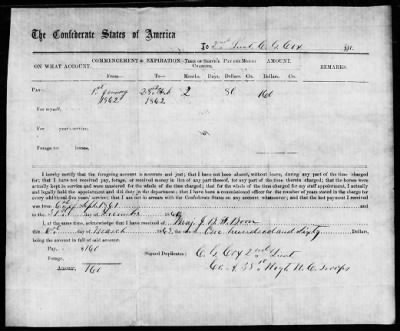 The Confederate States of America
To 2nd Lieut C. G. Cox Dr.
ON WHAT ACCOUNT. COMMENCEMENT & EXPIRATION. TIME OF SERVICE CHARGED. PAY PER MONTH AMOUNT. REMARKS.
From— To— Months. Days. Dollars Cts. Dollars. Cts.
Pay— 1st January 28th Feb 2 80 160
1862 1862
For myself,
For year's service;
Forage for horses,
I hereby certify that the foregoing account is accurate and just; that I have not been absent, without leave, during any part of the time
charged; that I have not received pay, forage, or received money in lieu of any part thereof, for any part of the time therein charged; that the horses were
actually kept in service and were mustered for the whole of the time charged; that for the whole of the time charged for my staff appointment, I actually
and legally held the appointment and did duty in the department; that I have been a commissioned officer for the number of years stated in the charge for
that I am not in arrears with the Confederate States on any account whatsoever; and that the last payment I received
was from
to the day of December 186
I, at the same time, acknowledge that I have received of Maj J.
this day of March 1862, One hundred and Sixty Dollars,
being the amount in full of said account.
Pay, $160
Forage,
Amount, 160
Signed Duplicates:
C. G. Cox 2nd Lieut
Co. 38th Regt N. C. Troops